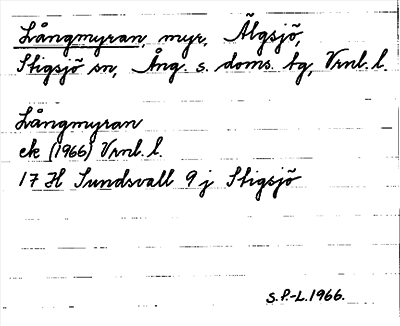 Långmyran, myr, Älgsjö,
Stigsjö sn, Ång. s. doms. tg, Vrnl. l.
Långmyran
ek (1966) Vrnl. l.
17 H Sundsvall 9 j Stigsjö
S.P.-L. 1966.